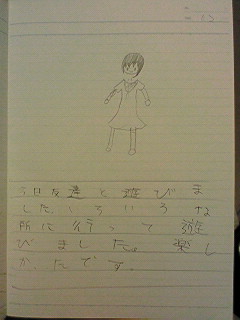 今日友達と遊びま
した。いろいろな
所に行って遊
びました。楽し
かったです。